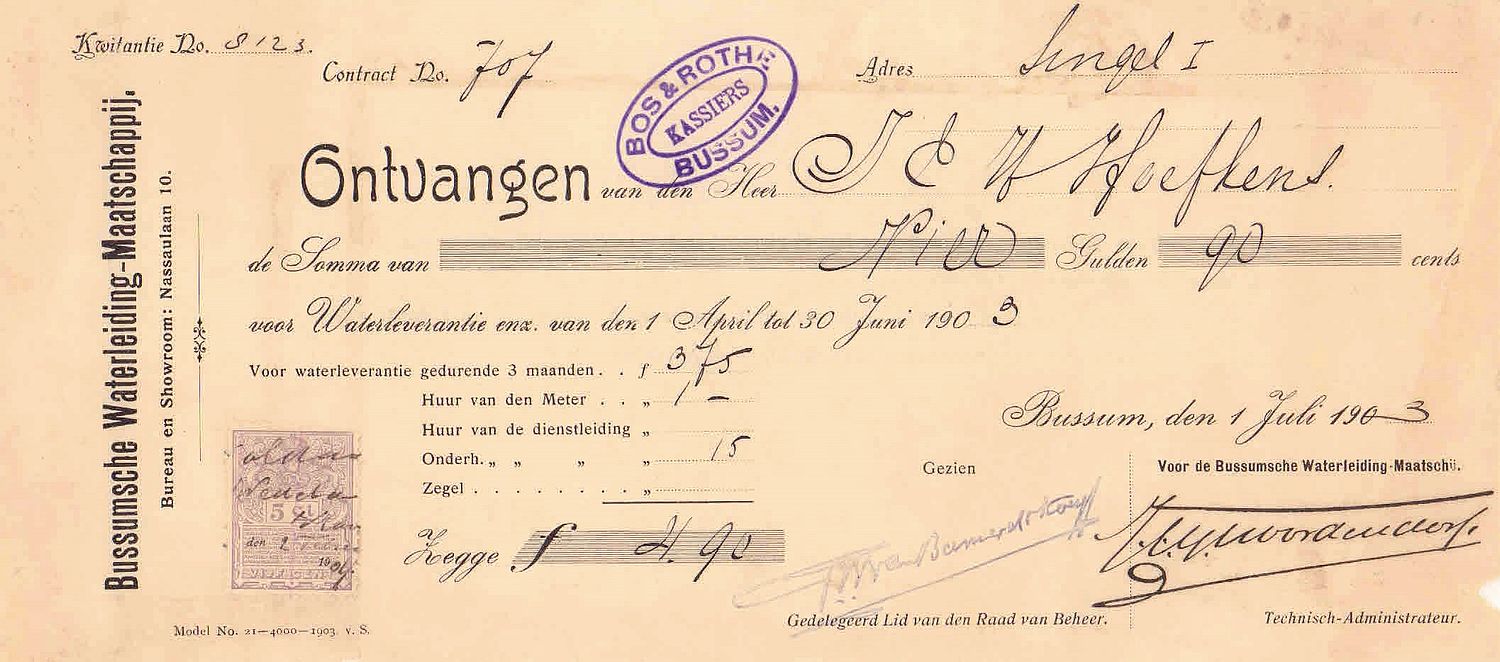 Kwitantie No. 8123.
Contract No. 707
Adres Singel I
BOS & ROTHE
KASSIERS
BUSSUM.
Bussumsche Waterleiding-Maatschappij.
Bureau en Showroom: Nassaulaan 10.
Ontvangen van den Heer J C W Hoefkens.
de Somma van Vier Gulden 90 cents
voor Waterleverantie enz. van den 1 April tot 30 Juni 1903
Voor waterleverantie gedurende 3 maanden . . f 3 75
Huur van den Meter . . „ 1 –
Huur van de dienstleiding „
Onderh. „ „ „ „ 15
Zegel . . . . . . . . „
Zegge f 4.90
Bussum, den 1 Juli 1903
Gezien
Voor de Bussumsche Waterleiding-Maatschij.
Gedelegeerd Lid van den Raad van Beheer.
Technisch-Administrateur.
5 Ct
den
19
VIJF CENT
Model No. 21—4000—1903. v. S.